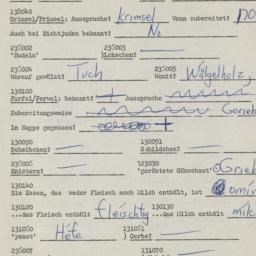 138040
Grimsel/Frimsel: Aussprache? Krimsel Wann zubereitet? no
Auch bei Nichtjuden bekannt? No
236002 236003
'Nudeln' )Lokschen?
236004 236005
Worauf gewälgt? Tuch Womit? Wälgelholz,
130100
Farfel/Ferwel: bekannt? + Aussprache
Zubereitungsweise Gerieb
In Suppe gegessen? +
130090 130091
Scheibchen? Schildchen?
236006 123030
Knistern? 'geröstete Gänsehaut' Grieb
130140
Ein Essen, das weder Fleisch noch Milch enthält, ist
130120 130130
...das Fleisch enthält fleischtig ...das Milch enthält milc
131060 131061
'yeast' Hefe ) Gerbe?
236007 131070